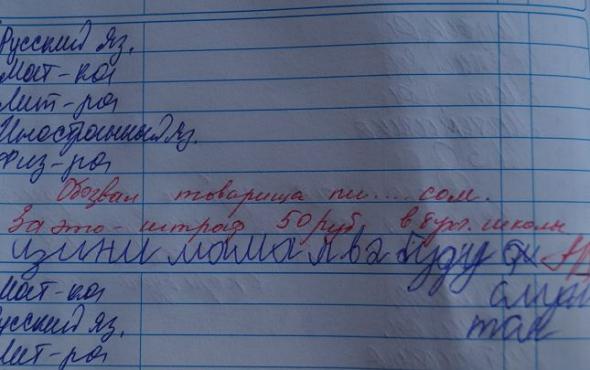 Русский яз.
Мат-ка
Лит-ра
Иностранный яз.
Физ-ра
Обозвал товарища пи....сом.
За это - штраф 50 руб в бух. школы
изини мама я ва буду
Мат-ка
Русский яз.
так
Лит-ра